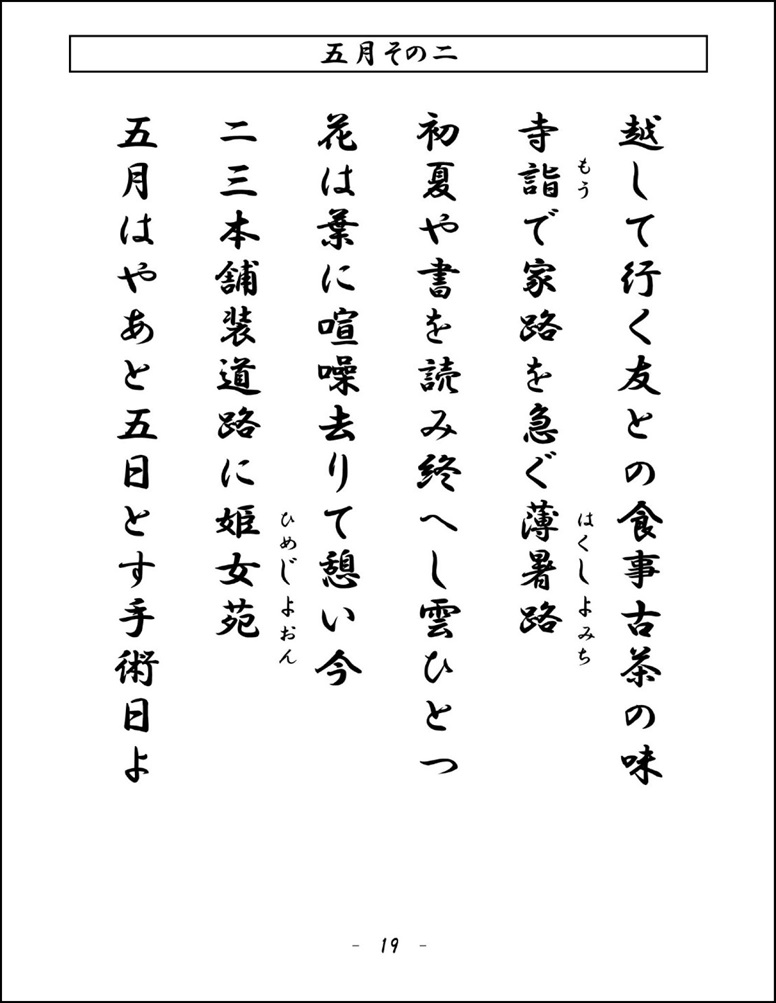 五月その二
越して行く友との食事古茶の味
寺詣で家路を急ぐ薄暑路
もう
はくしよみち
初夏や書を読み終へし雲ひとつ
花は葉に喧噪去りて憩い今
二三本舗装道路に姫女苑
ひめじよおん
五月はやあと五日とす手術日よ
- 19 -